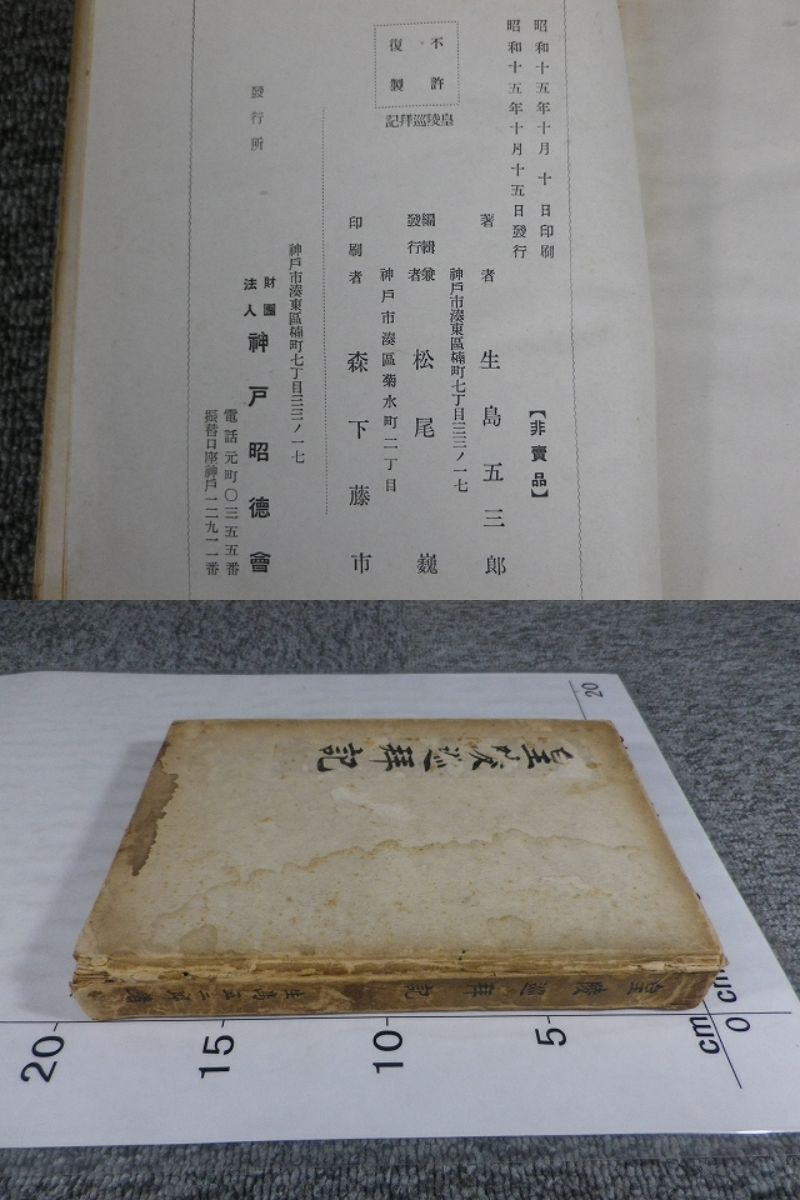 昭和十五年十月十日印刷
昭和十五年十月十五日發行
【非賣品】
不許
復製
皇陵巡拜記
著者
生島五三郎
神戶市湊東區楠町七丁目三三ノ一七
編輯兼
發行者
松尾巍
神戶市湊區菊水町二丁目
印刷者
森下藤市
神戶市湊東區楠町七丁目三三ノ一七
發行所
財團
法人
神戶昭德會
電話元町〇三五五番
振替口座神戶一二九一一番
皇陵巡拜記
皇陵巡拜記 生島五三郎著
20
20
15
10
5
0
cm
cm